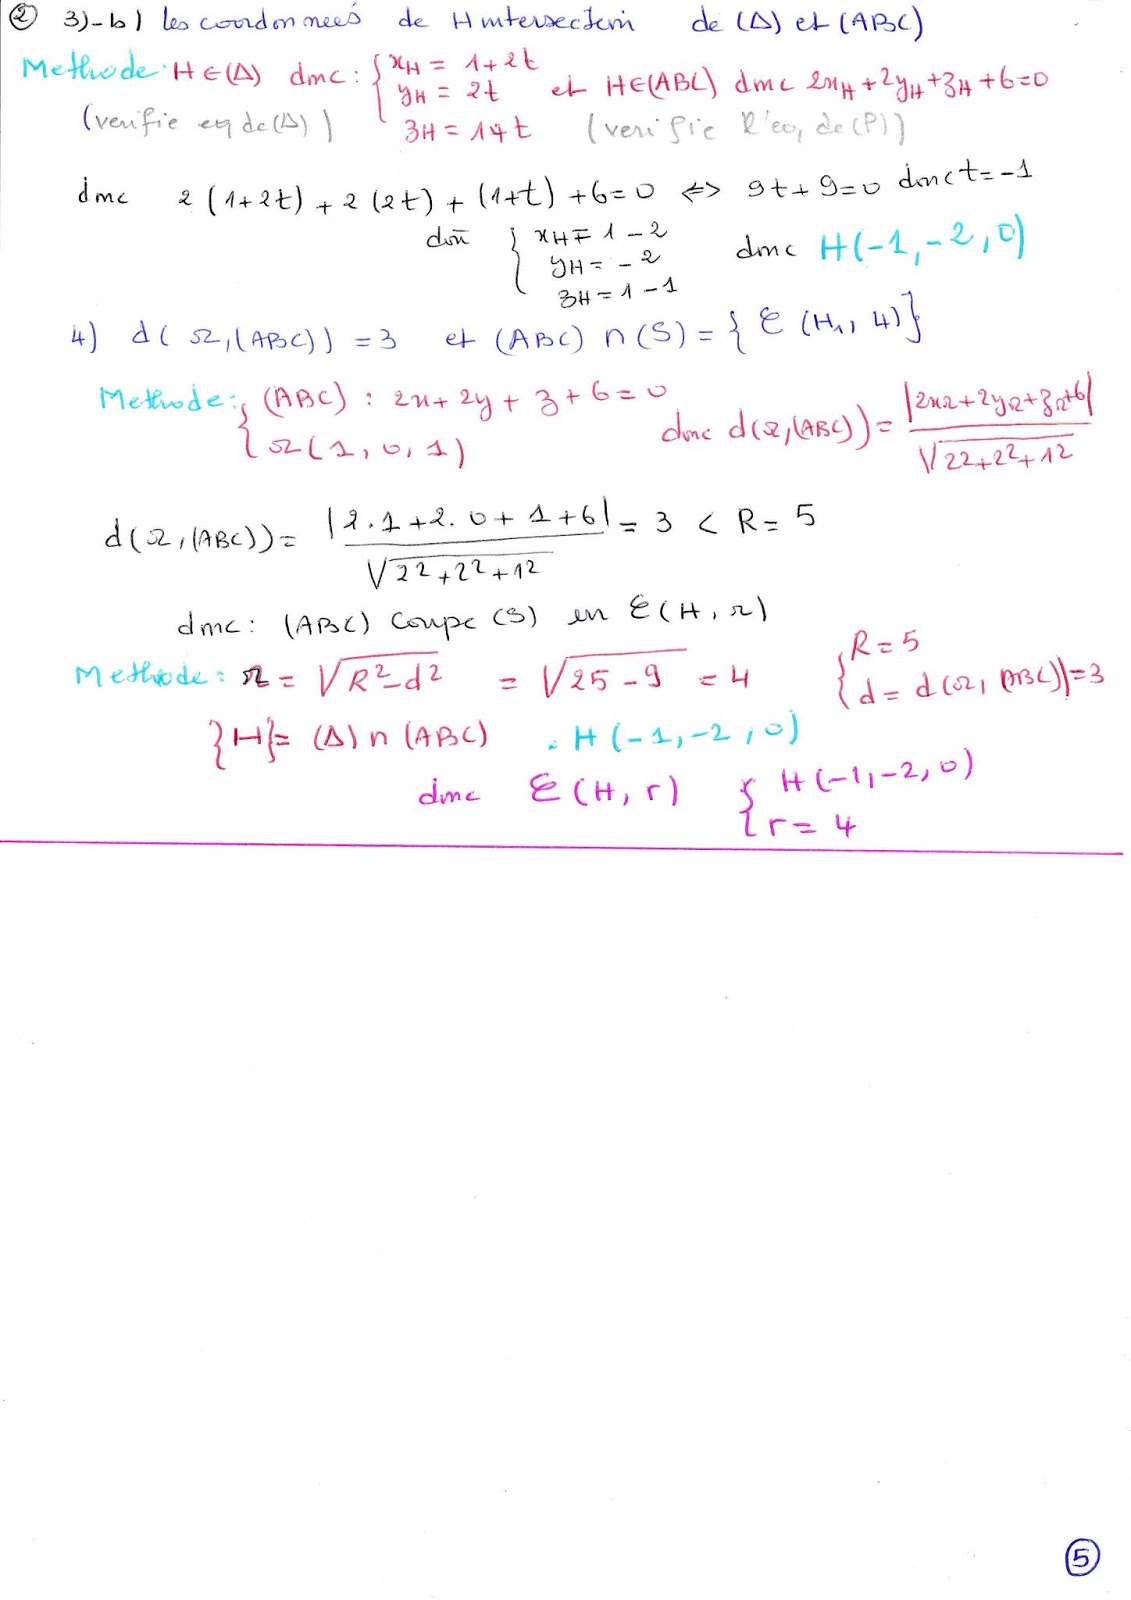 ② 3)-b) les coordonnées de H intersection de (Δ) et (ABC)
Methode: H∈(Δ) donc: { x_H = 1+2t
y_H = 2t
z_H = 1+t
et H∈(ABC) donc 2x_H+2y_H+z_H+6=0
(verifie eq de(Δ)) (verifie l'eq de(P))
donc 2(1+2t)+2(2t)+(1+t)+6=0 ⇔ 9t+9=0 donc t=-1
d'où { x_H = 1-2
y_H = -2
z_H = 1-1
donc H(-1,-2,0)
4) d(Ω,(ABC))=3 et (ABC)∩(S)={ℰ(H,4)}
Methode: { (ABC): 2x+2y+z+6=0
Ω(1,0,1)
donc d(Ω,(ABC))= |2x_Ω+2y_Ω+z_Ω+6| / √2²+2²+1²
d(Ω,(ABC))= |2.1+2.0+1+6| / √2²+2²+1² = 3 < R = 5
donc: (ABC) coupe (S) en ℰ(H,r)
Methode: r = √R²-d² = √25-9 = 4 { R=5
d = d(Ω,(ABC))=3
{H}= (Δ)∩(ABC) . H(-1,-2,0)
donc ℰ(H,r) { H(-1,-2,0)
r = 4
⑤